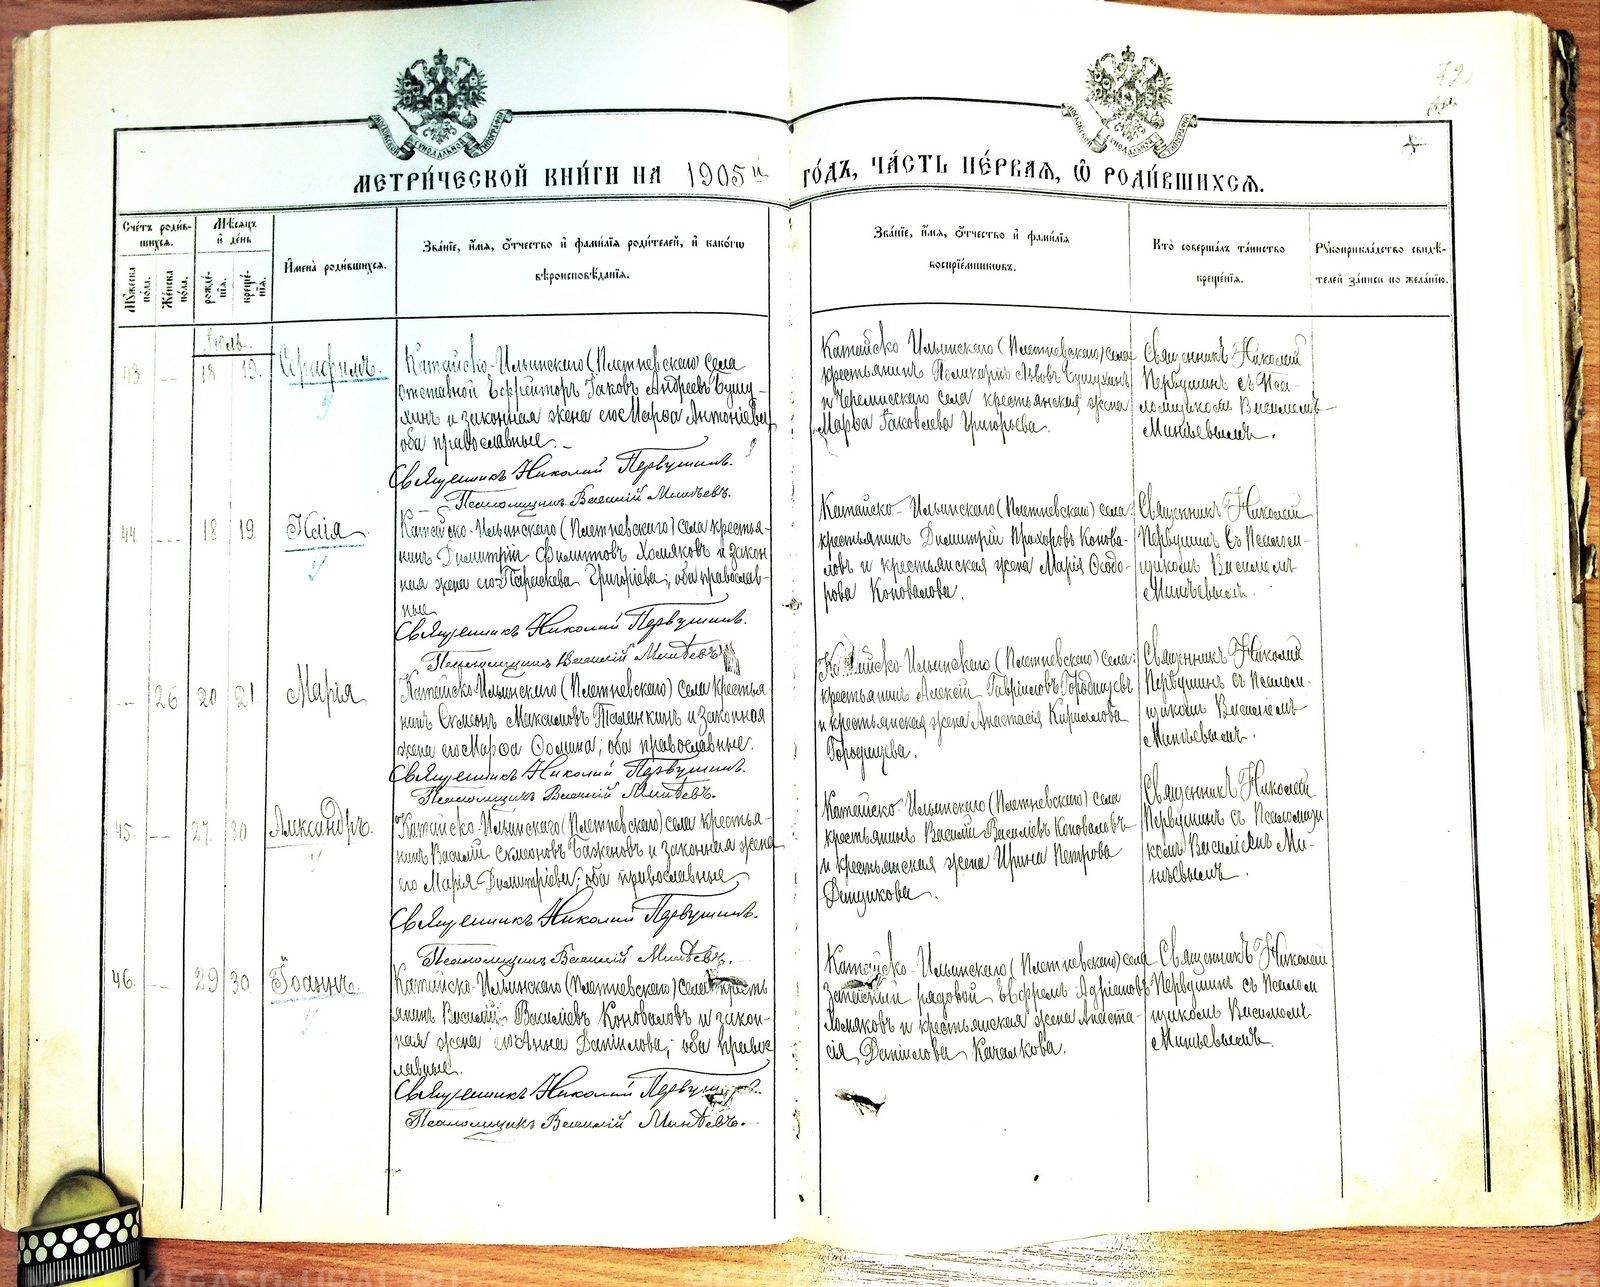 72
МОСКОВСКОЙ СѴНОДАЛЬНОЙ ТИПОГРАФІИ
МОСКОВСКОЙ СѴНОДАЛЬНОЙ ТИПОГРАФІИ
МЕТРИ́ЧЕСКОЙ КНИ́ГИ НА 1905й ГО́ДЪ, ЧА́СТЬ ПЕ́РВАЯ, Ѽ РОДИ́ВШИХСЯ.
Сче́тъ роди́в-
шихся.
Мꙋжеска по́ла.
Же́нска по́ла.
Мѣ́сяцъ
и҆ де́нь
рожде́-
нїѧ.
креще́-
нїѧ.
И҆мена̀ роди́вшихся.
Зва́нїе, и҆́мя, ѻ҆́тчество и҆ фами́лїѧ роди́телей, и҆ како́гѡ
вѣроисповѣ́данїѧ.
Зва́нїе, и҆́мя, ѻ҆́тчество и҆ фами́лїѧ
воспрїе́мникѡвъ.
Кто̀ соверша́лъ та́инство
креще́нїѧ.
Рꙋкоприкла́дство свидѣ́-
телей за́писи по жела́нїю.
Іюль.
43 — 18 19. Серафимъ.
Катайско-Ильинскаго (Плетневскаго) села
отставной Ефрейторъ Іаковъ Андреевъ Сушу-
хинъ и законная жена его Марѳа Антоніева,
оба православные.
Священникъ Николай Первушинъ.
Псаломщикъ Василій Минѣевъ.
Катайско Ильинскаго (Плетневскаго) села
крестьянинъ Поликарпъ Львовъ Сушухинъ
и Черемисскаго села крестьянская жена
Марѳа Іаковлева Григорьева.
Священникъ Николай
Первушинъ съ Пса-
ломщикомъ Василіемъ
Минѣевымъ.
44 — 18 19.
Катайско-Ильинскаго (Плетневскаго) села крестья-
нинъ Димитрій Филиповъ Хомяковъ и закон
ная жена его Параскева Григоріева, оба православ-
ные
Священникъ Николай Первушинъ.
Псаломщикъ Василій Минѣевъ
Катайско-Ильинскаго (Плетневскаго) села
крестьянинъ Димитрій Прохоровъ Конова-
ловъ и крестьянская жена Марія Ѳеодо-
рова Коновалова.
Священникъ Николай
Первушинъ съ Псалом-
щикомъ Василіемъ
Минѣевымъ.
— 26 20 21 Марія
Катайско-Ильинскаго (Плетневскаго) села крестья-
нинъ Симеонъ Максимовъ Таланкинъ и законная
жена его Марѳа Ѳомина, оба православные.
Священникъ Николай Первушинъ.
Псаломщикъ Василій Минѣевъ.
Катайско-Ильинскаго (Плетневскаго) села
крестьянинъ Алексѣй Гавріиловъ Городищевъ
и крестьянская жена Анастасія Кириллова
Городищева.
Священникъ Николай
Первушинъ съ Псалом-
щикомъ Василіемъ
Минѣевымъ.
45. — 27. 30 Александръ.
Катайско-Ильинскаго (Плетневскаго) села крестья-
нинъ Василій Симеоновъ Баженовъ и законная жена
его Марія Димитріева, оба православные
Священникъ Николай Первушинъ.
Псаломщикъ Василій Минѣевъ.
Катайско-Ильинскаго (Плетневскаго) села
крестьянинъ Василій Василіевъ Коноваловъ
и крестьянская жена Ирина Петрова
Священникъ Николай
Первушинъ съ Псаломщи
комъ Василіемъ Ми-
нѣевымъ.
46. — 29 30 Іоаннъ.
Катайско-Ильинскаго (Плетневскаго) села кресть
янинъ Василій Василіевъ Коноваловъ и закон-
ная жена его Анна Даніилова, оба право-
славные.
Священникъ Николай Первушинъ.
Псаломщикъ Василій Минѣевъ.
Катайско-Ильинскаго (Плетневскаго) села
Запасный рядовой Ефремъ Адріановъ
Хомяковъ и крестьянская жена Анаста-
сія Даніилова Качалкова.
Священникъ Николай
Первушинъ съ Псалом
щикомъ Василіемъ
Минѣевымъ.